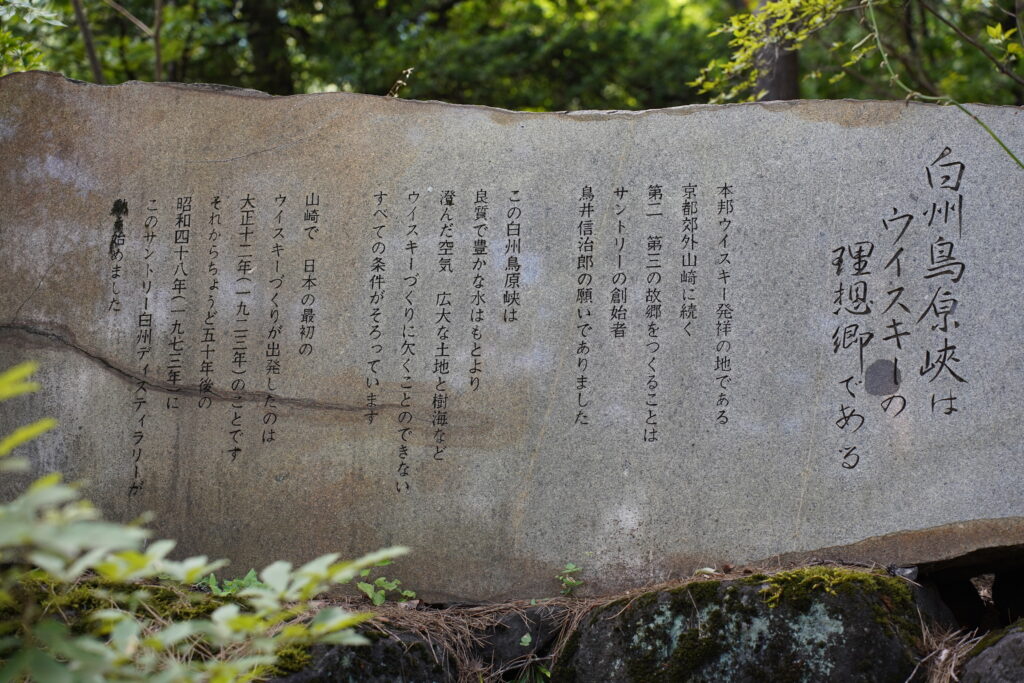 白州鳥原峡は
ウイスキーの
理想郷である
本邦ウイスキー発祥の地である
京都郊外山崎に続く
第二　第三の故郷をつくることは
サントリーの創始者
鳥井信治郎の願いでありました
この白州鳥原峡は
良質で豊かな水はもとより
澄んだ空気　広大な土地と樹海など
ウイスキーづくりに欠くことのできない
すべての条件がそろっています
山崎で　日本の最初の
ウイスキーづくりが出発したのは
大正十二年(一九二三年)のことです
それからちょうど五十年後の
昭和四十八年(一九七三年)に
このサントリー白州ディスティラリーが
始めました